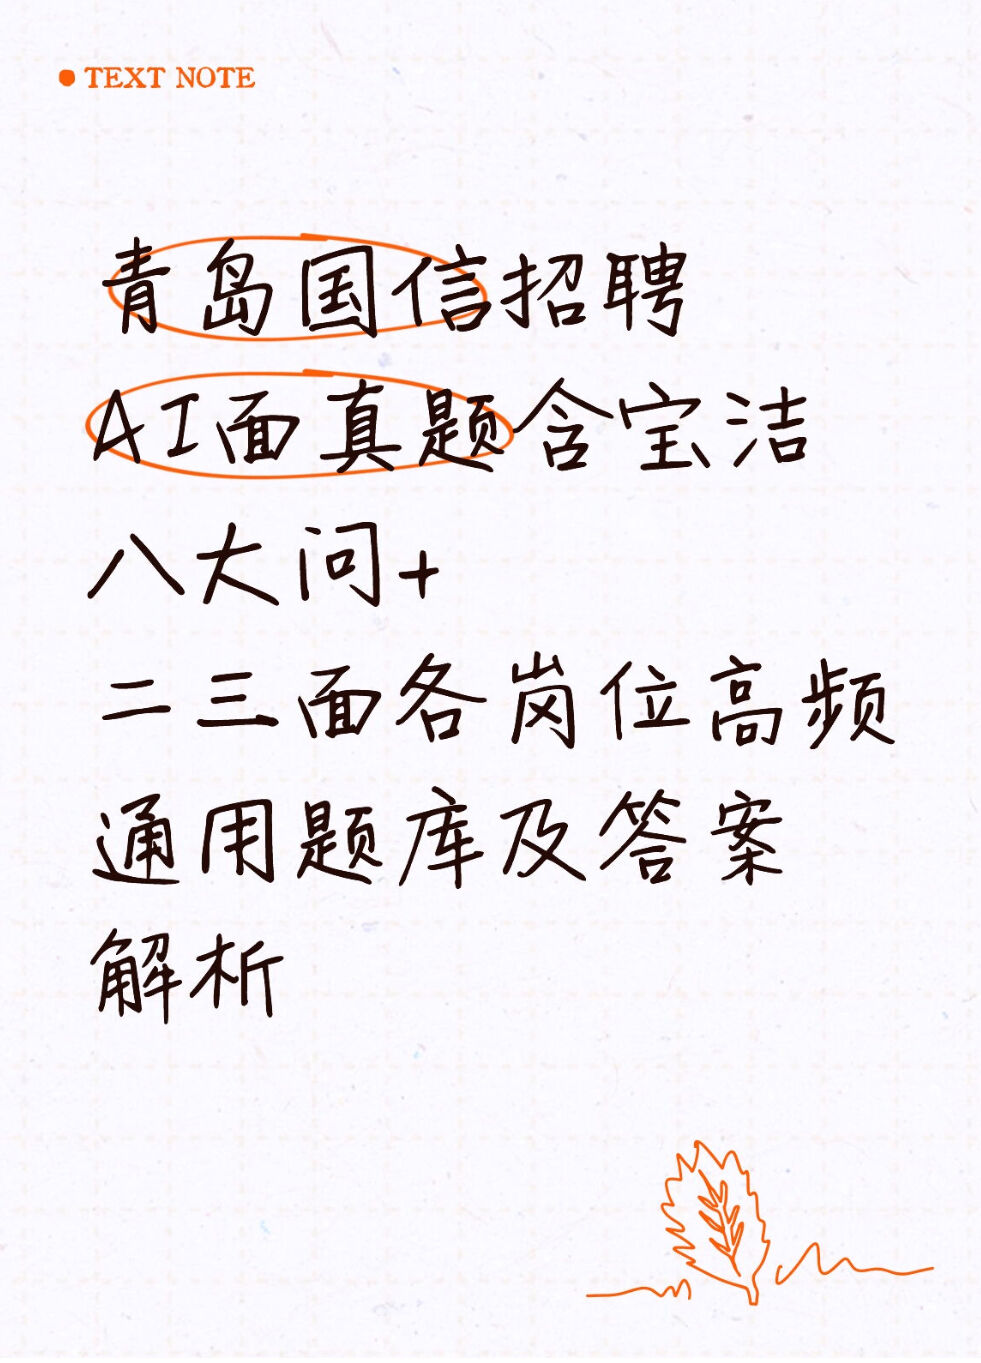 TEXT NOTE
青岛国信招聘
AI面真题含宝洁
八大问+
二三面各岗位高频
通用题库及答案
解析